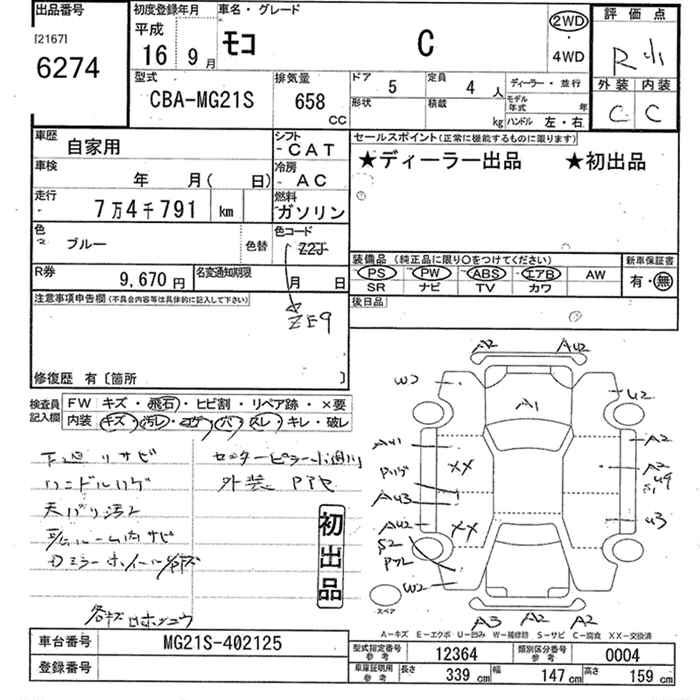 出品番号
[2167]
6274
初度登録年月
平成
16年
9月
車名・グレード
モコ C
2WD
・
4WD
評価点
R
外装 内装
C C
型式
CBA-MG21S
排気量
658
CC
ドア
5
定員
4人
形状
積載
kg
ディーラー・並行
モデル年式 年
ハンドル 左・右
車歴
自家用
シフト
CAT
車検
年 月( 日)
冷房
AC
走行
7万4千791 km
燃料
ガソリン
色
ブルー
色替
色コード
ZZJ
ZE9
R券
9,670円
名変通知期限
月 日
セールスポイント(正常に機能するものに限ります)
★ディーラー出品 ★初出品
装備品(純正品に限り○をつけてください)
PS PW ABS エアB AW
SR ナビ TV カワ
新車保証書
有・無
後日品
注意事項申告欄(不具合内容等は具体的に記入して下さい)
修復歴 有〔箇所 〕
検査員記入欄
FW キズ・飛石・ヒビ割・リペア跡・×要
内装 キズ・汚レ・コゲ・穴・スレ・キレ・破レ
下廻リサビ
ハンドルハゲ
天バリ汚レ
外装
初出品
A2 A42
W2
A1
U2
A41
A2
XX
A43
A42
XX
S2
U3
W2
A3 A2 A2
スペア
A－キズ E－エクボ U－凹み W－補修跡 S－サビ C－腐食 XX－交換済
車台番号
MG21S-402125
登録番号
型式指定番号 参考
12364
類別区分番号 参考
0004
車庫証明用 参考
長さ 339 cm
幅 147 cm
高さ 159 cm